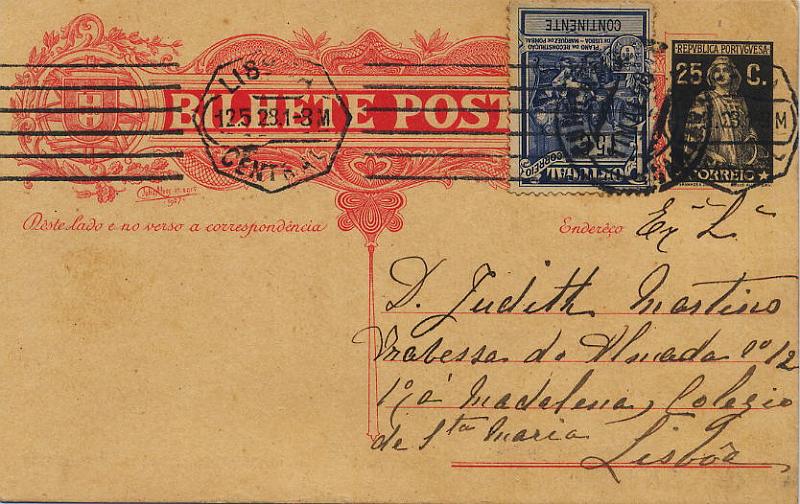 BILHETE POST
LISBOA
12.5.28.1-3 M
CENTRAL
CONTINENTE
PLANO DA RECONSTRUÇÃO
DE LISBOA - MARQUEZ DE POMBAL
CORREIO
REPVBLICA PORTVGVESA
25 C.
CORREIO
Nèste lado e no verso a correspondência
Enderêço
Exª
D. Judith Martins
Travessa do Almada nº 12
1º, á Madalena, Colegio
de Sta Maria
Lisbôa